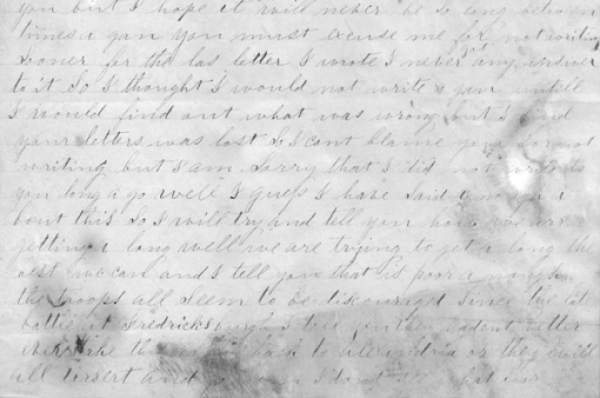 you but I hope it will never be so long between
times a gan you must excuse me for not writing
sooner for the las letter I wrote I never any answer
to it So I thought I would not write a gan untill
I would find out what was wrong but I find
your letters was lost So I cant blame you for not
writing but I am Sorry that I did not write to
you long a go well I guess I have Said enough a
bout this So I will try and tell you how we are
getting a long well we are trying to get a long the
best we can and I tell you that is poor a nough
the troops all Seem to be discouragd Since the
battle at Fredricksburgh I tell you they had better
take them back to Alexandria or they will
all desert and I dont